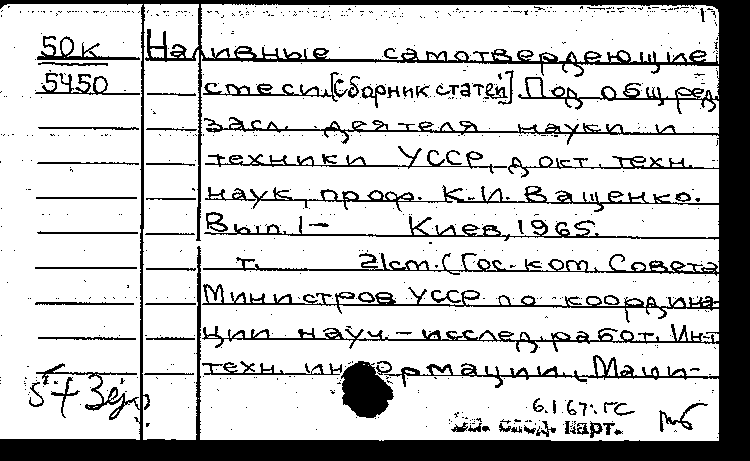 50к Наливные самотвердеющие
5450 смеси. [Сборник статей]. Под общ. ред.
засл. деятеля науки и
техники УССР, докт. техн.
наук, проф. К.И. Ващенко.
Вып. 1- Киев, 1965.
т. 21cm. (Гос. ком. Совета
Министров УССР по координа-
ции науч.-исслед. работ. Ин-т
техн. информации. Маши-
6.I 67. ГС
См. след. карт.